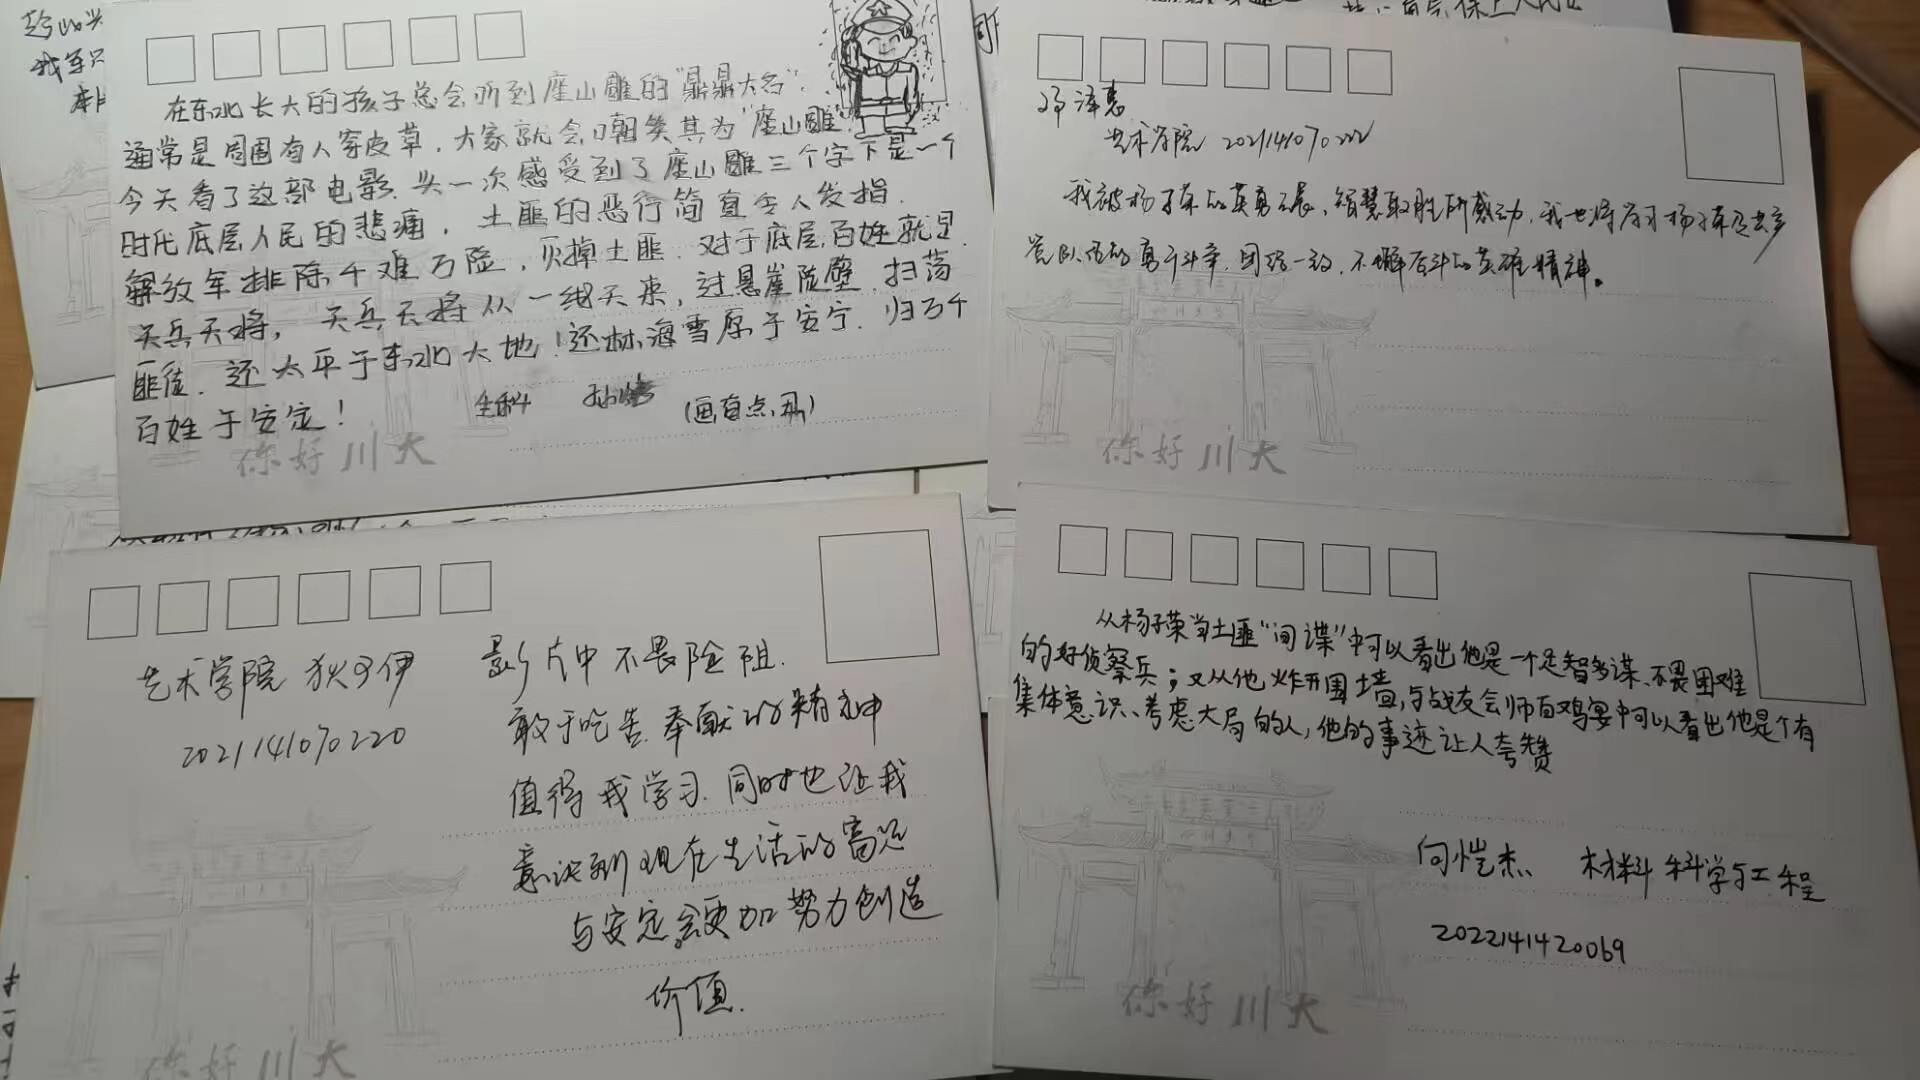 在东北长大的孩子总会听到座山雕的"鼎鼎大名".
通常是周围有人穿皮草,大家就会嘲笑其为"座山雕"
今天看了这部电影.头一次感受到了座山雕三个字下是一个
时代底层人民的悲痛,土匪的恶行简直令人发指.
解放军排除千难万险,灭掉土匪.对于底层百姓就是
天兵天将,天兵天将从一线天来,过悬崖陡壁.扫荡
匪徒.还太平于东北大地!还林海雪原于安宁.归万千
百姓于安定!
生科
(画有点丑)
你好川大
泽惠
艺术学院 2021141070222
我被杨子荣的英勇、智慧取胜所感动,我也将学习杨子荣及共产
党队伍的勇于斗争,团结一致,不懈奋斗的英雄精神。
你好川大
艺术学院 狄子伊
2021141070220
影片中不畏险阻.
敢于吃苦.奉献的精神
值得我学习.同时也让我
意识到现在生活的富足
与安定.会更加努力创造
价值.
你好川大
从杨子荣当土匪"间谍"中可以看出他是一个足智多谋、不畏困难
的好侦察兵;又从他炸开围墙,与战友会师百鸡宴中可以看出他是个有
集体意识、考虑大局的人,他的事迹让人夸赞
向恺杰 材料科学与工程
2022141420069
你好川大